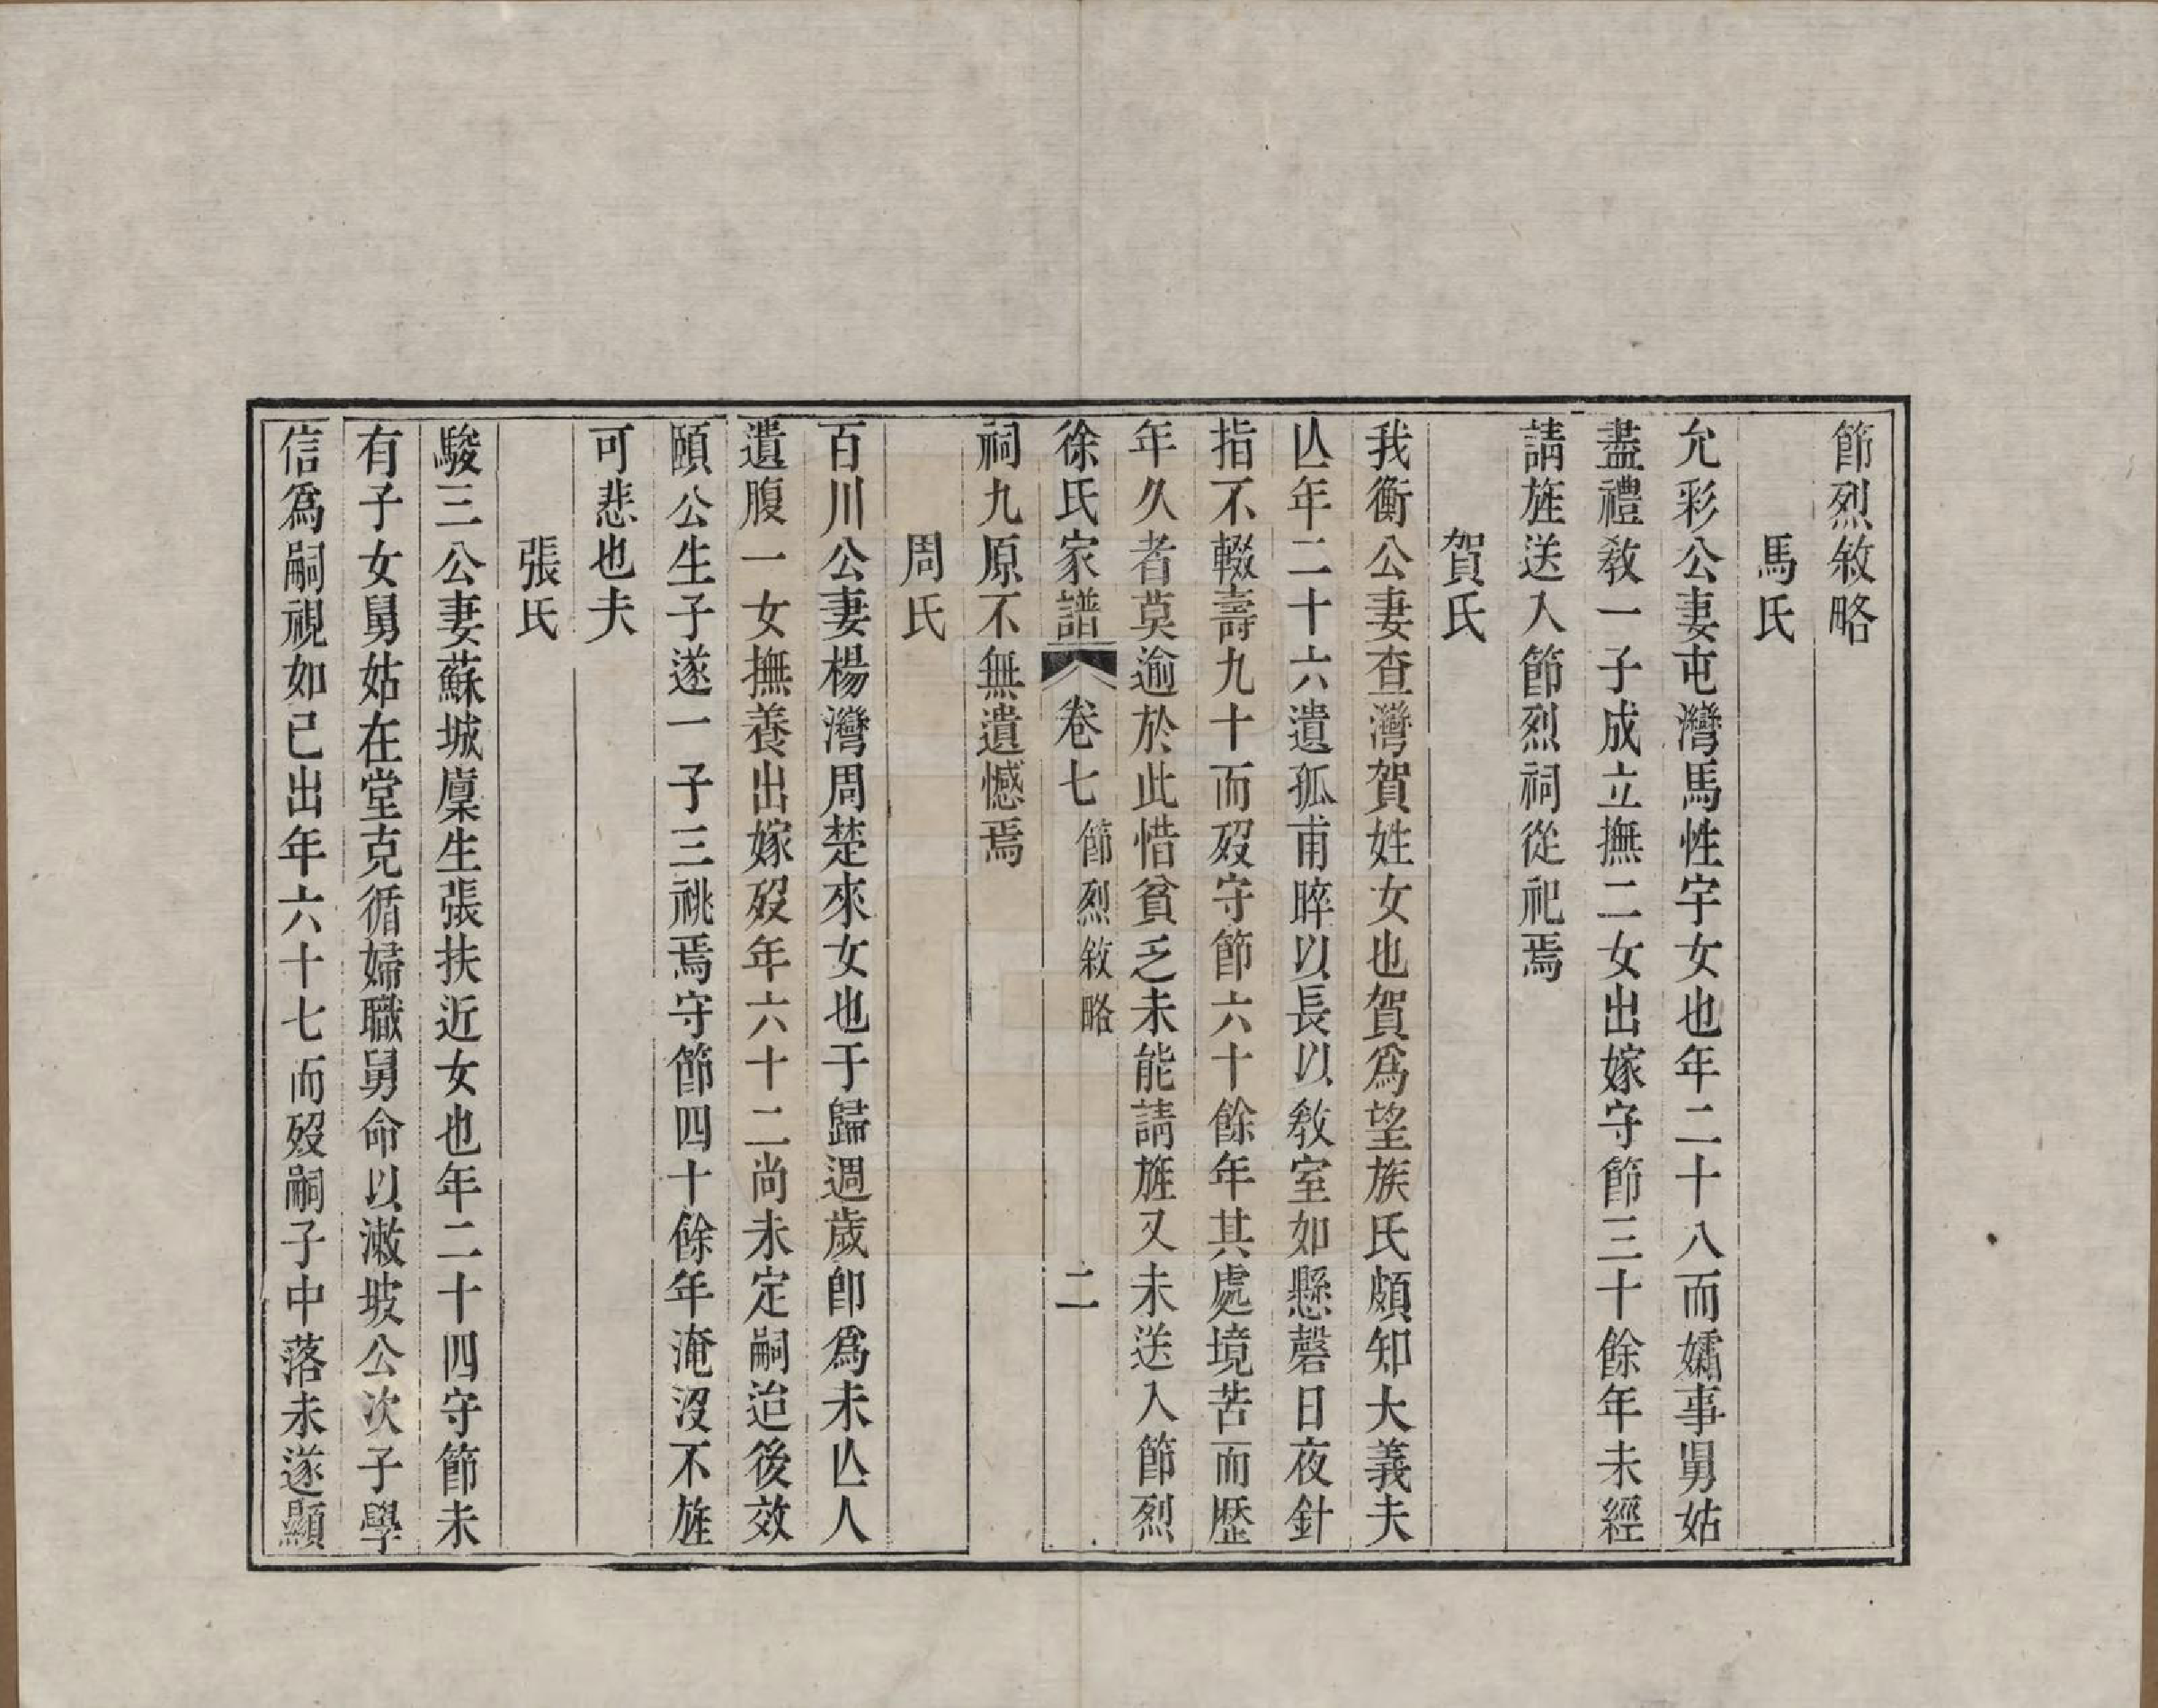 節烈敘略
馬氏
允彩公妻屯灣馬性宇女也年二十八而孀事舅姑
盡禮敎一子成立撫二女出嫁守節三十餘年未經
請旌送入節烈祠從祀焉
賀氏
我衡公妻查灣賀姓女也賀爲望族氏頗知大義夫
亾年二十六遺孤甫晬以長以敎室如懸磬日夜針
指不輟壽九十而歿守節六十餘年其處境苦而歷
年久者莫逾於此惜貧乏未能請旌又未送入節烈
徐氏家譜 卷七 節烈敘略 二
祠九原不無遺憾焉
周氏
百川公妻楊灣周楚來女也于歸週歲卽爲未亾人
遺腹一女撫養出嫁歿年六十二尚未定嗣迨後效
頤公生子遂一子三祧焉守節四十餘年淹沒不旌
可悲也夫
張氏
駿三公妻蘇城廩生張扶近女也年二十四守節未
有子女舅姑在堂克循婦職舅命以漱坡公次子學
信爲嗣視如已出年六十七而歿嗣子中落未遂顯